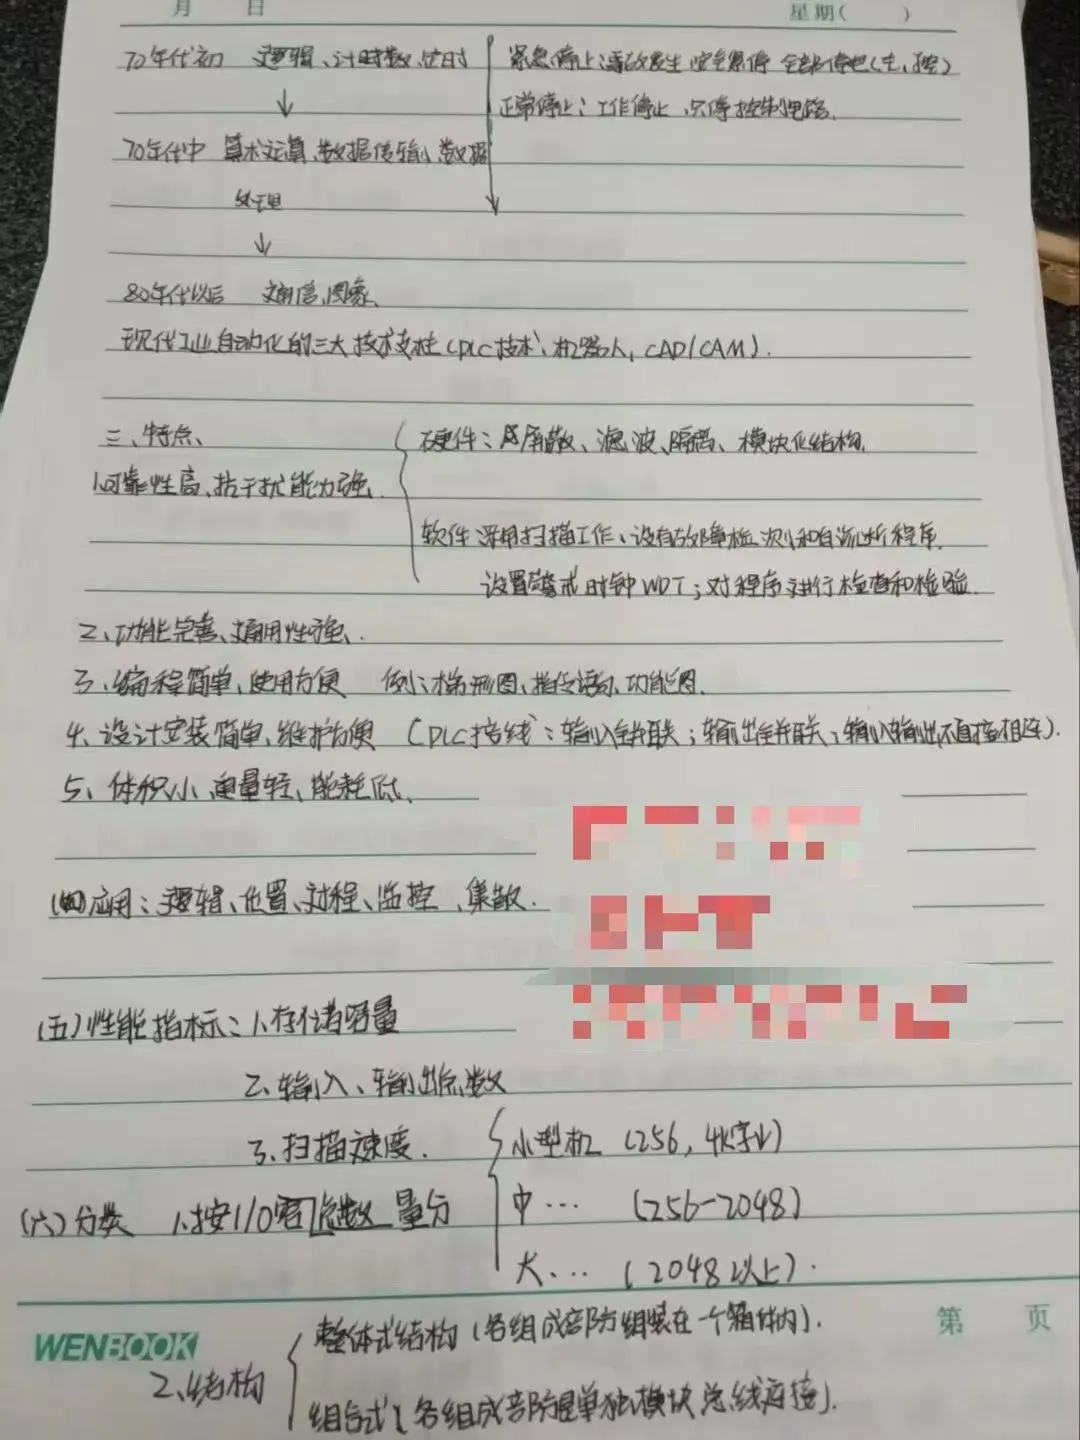 月 日 星期( )
70年代初 逻辑、计时数、定时
紧急停止:事故发生 安全急停 全部停电(主、控)
正常停止:工作停止 只停控制电路.
70年代中 算术运算、数据传输、数据
处理
80年代以后 通信、图象、
现代工业自动化的三大技术支柱(PLC技术、机器人,CAD/CAM).
三、特点、
硬件:屏蔽、滤波、隔离、模块化结构.
1.可靠性高、抗干扰能力强.
软件 采用扫描工作、设有故障检测和自诊断程序.
设置警戒时钟WDT;对程序进行检查和检验.
2、功能完善、通用性强、.
3、编程简单、使用方便 例:梯形图、指令语句、功能图.
4、设计安装简单,维护方便 (PLC接线:输入全并联;输出全并联;输入输出不直接相连).
5、体积小、重量轻、能耗低、
(四)应用:逻辑、位置、过程、监控、集散.
(五)性能指标:1、存储容量
2、输入、输出点数
3、扫描速度.
小型机 (256,4K字以)
(六)分类 1.按I/O容点数 量分
中… (256-2048)
大… (2048以上).
第 页
WENBOOK
整体式结构(各组成部防组装在一个箱体内).
2、结构
组合式(各组成部防是单独模块总线连接).